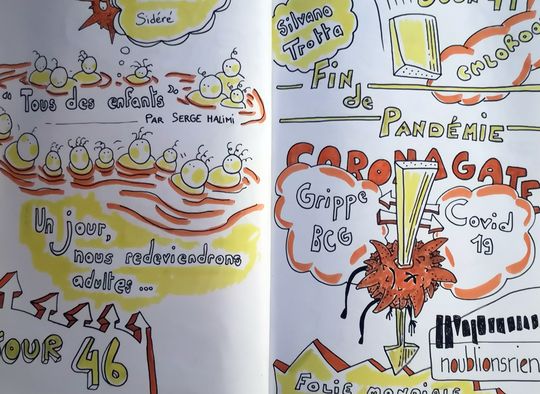 Sidéré
« Tous des enfants »
PAR SERGE HALIMI
Un jour,
nous redeviendrons
adultes ...
JOUR 46
Silvano
Trotta
JOUR 47
CHLOROQ
FIN
de
PANDÉMIE
CORONAGATE
Grippe
BCG
Covid
19
noublionsrien
FOLIE MONDIALE